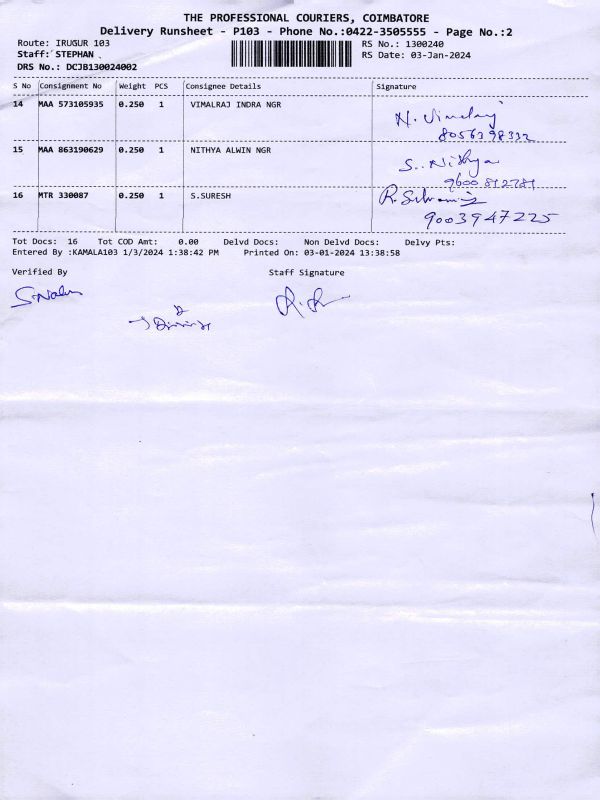 THE PROFESSIONAL COURIERS, COIMBATORE
Delivery Runsheet - P103 - Phone No.:0422-3505555 - Page No.:2
Route: IRUGUR 103 RS No.: 1300240
Staff: STEPHAN . RS Date: 03-Jan-2024
DRS No.: DCJB130024002
S No Consignment No Weight PCS Consignee Details Signature
14 MAA 573105935 0.250 1 VIMALRAJ INDRA NGR
N. Vimalraj
8056398332
15 MAA 863190629 0.250 1 NITHYA ALWIN NGR
S. Nithya
9600812781
16 MTR 330087 0.250 1 S.SURESH
9003947225
Tot Docs: 16 Tot COD Amt: 0.00 Delvd Docs: Non Delvd Docs: Delvy Pts:
Entered By :KAMALA103 1/3/2024 1:38:42 PM Printed On: 03-01-2024 13:38:58
Verified By Staff Signature